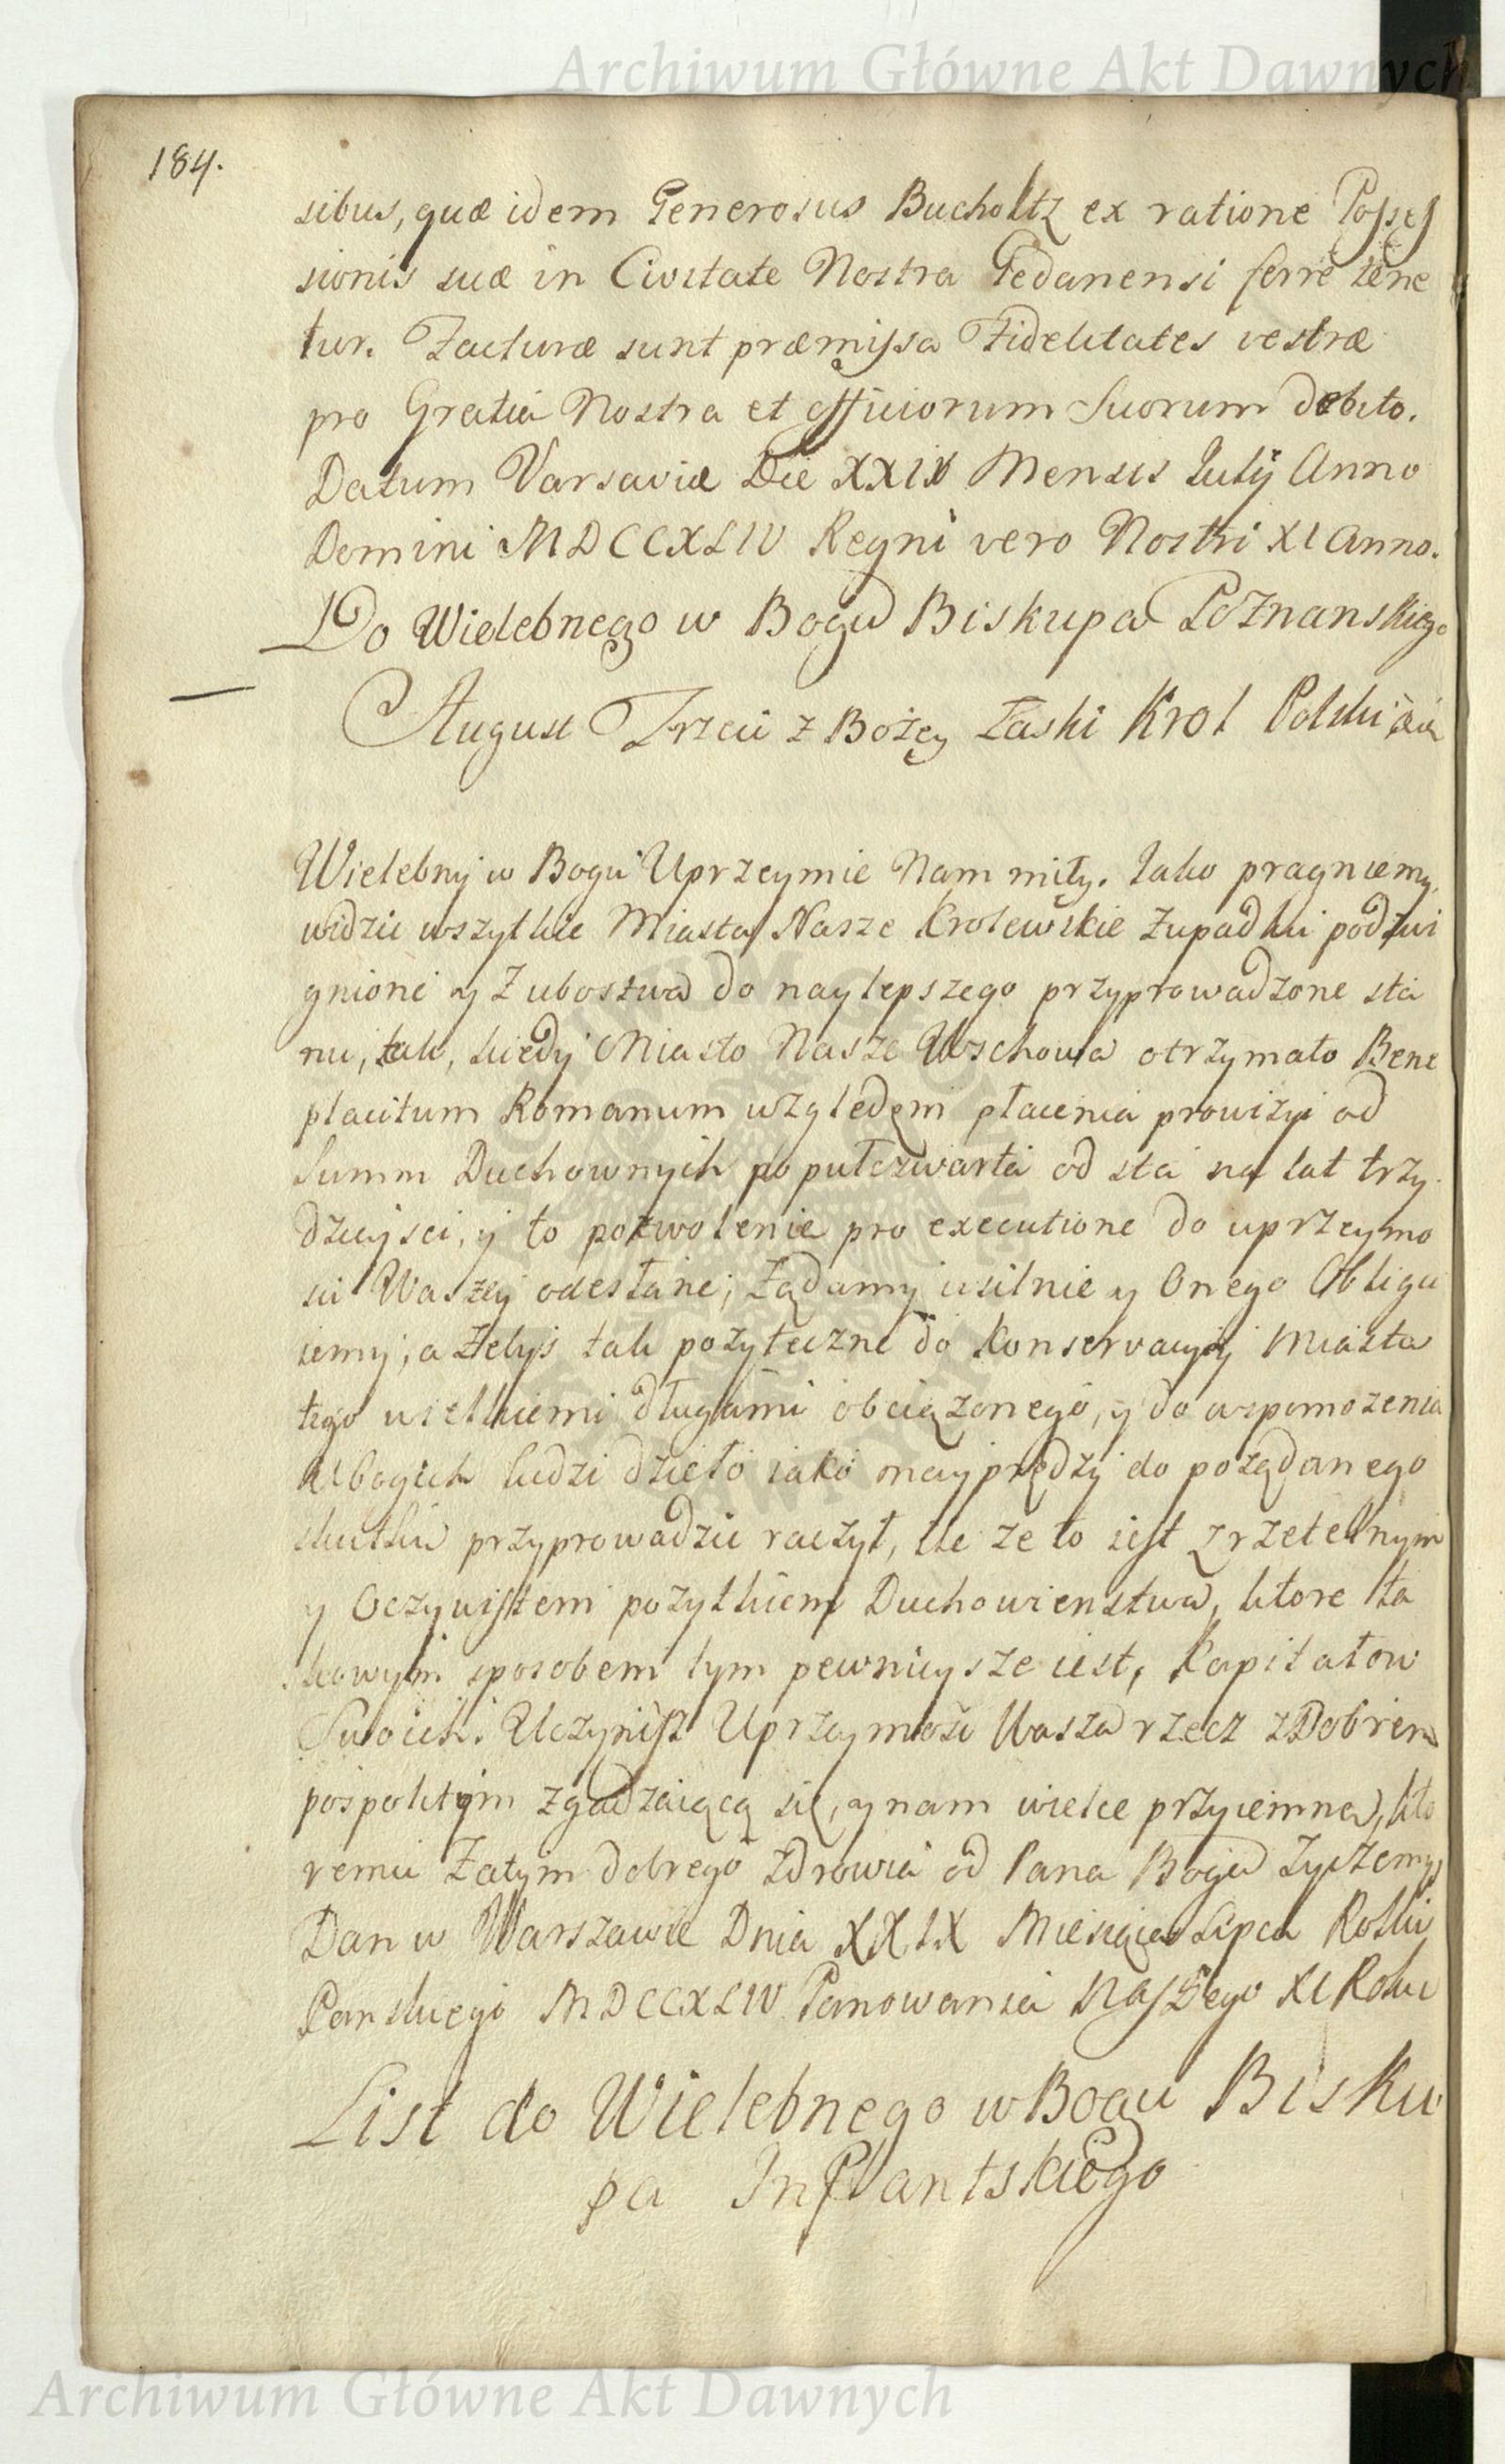 Archiwum Główne Akt Dawnych
184.
sibus, quæ idem Generosus Bucholtz ex ratione Posses
sionis suæ in Civitate Nostra Gedanensi ferre tene
tur. Facturæ sunt præmissa Fidelitates vestræ
pro Gratia Nostra et officiorum Suorum debito.
Datum Varsaviæ Die XXIX Mensis Julij Anno
Domini MDCCXLIV Regni vero Nostri XI Anno.
Do Wielebnego w Bogu Biskupa Poznanskiego
August Trzeci z Bożey Łaski Krol Polski
Wielebny w Bogu Uprzeymie Nam miły. Jako pragniemy
widzic wszytkie Miasta Nasze Krolewskie z upadku podzwi
gnione y z ubostwa do naylepszego przyprowadzone sta
nu, tak, kiedy Miasto Nasze Wschowa otrzymało Bene
placitum Romanum względem płacenia prowizyi od
Summ Duchownych po pułczwarta od sta na lat trzy
dzieysci, y to pozwolenie pro executione do uprzeymo
sci Waszey odesłane; żądamy usilnie y Onego Obligu
iemy, a żebyś tak pożyteczne do konserwacyi Miasta
tego wielkiemi długami obciążonego, y do wspomożenia
Ubogich ludzi dzieło iako nayprędzy do pożądanego
skutku przyprowadzic raczył, ile że to iest zrzetelnym
y Oczywistem pożytkiem Duchowienstwa, ktore ta
kowym sposobem tym pewnieysze iest, Kapitałow
Swoich. Uczynisz Uprzeymość Wasza rzecz z Dobrem
pospolitym zgadzaiącą się, y nam wielce przyiemną, kto
remu zatym dobrego zdrowia od Pana Boga życzemy
Dan w Warszawie Dnia XXIX Miesiąca Lipca Roku
Panskiego MDCCXLIV Panowania Naszego XI Roku
List do Wielebnego w Bogu Bisku
pa Inflantskiego
Archiwum Główne Akt Dawnych